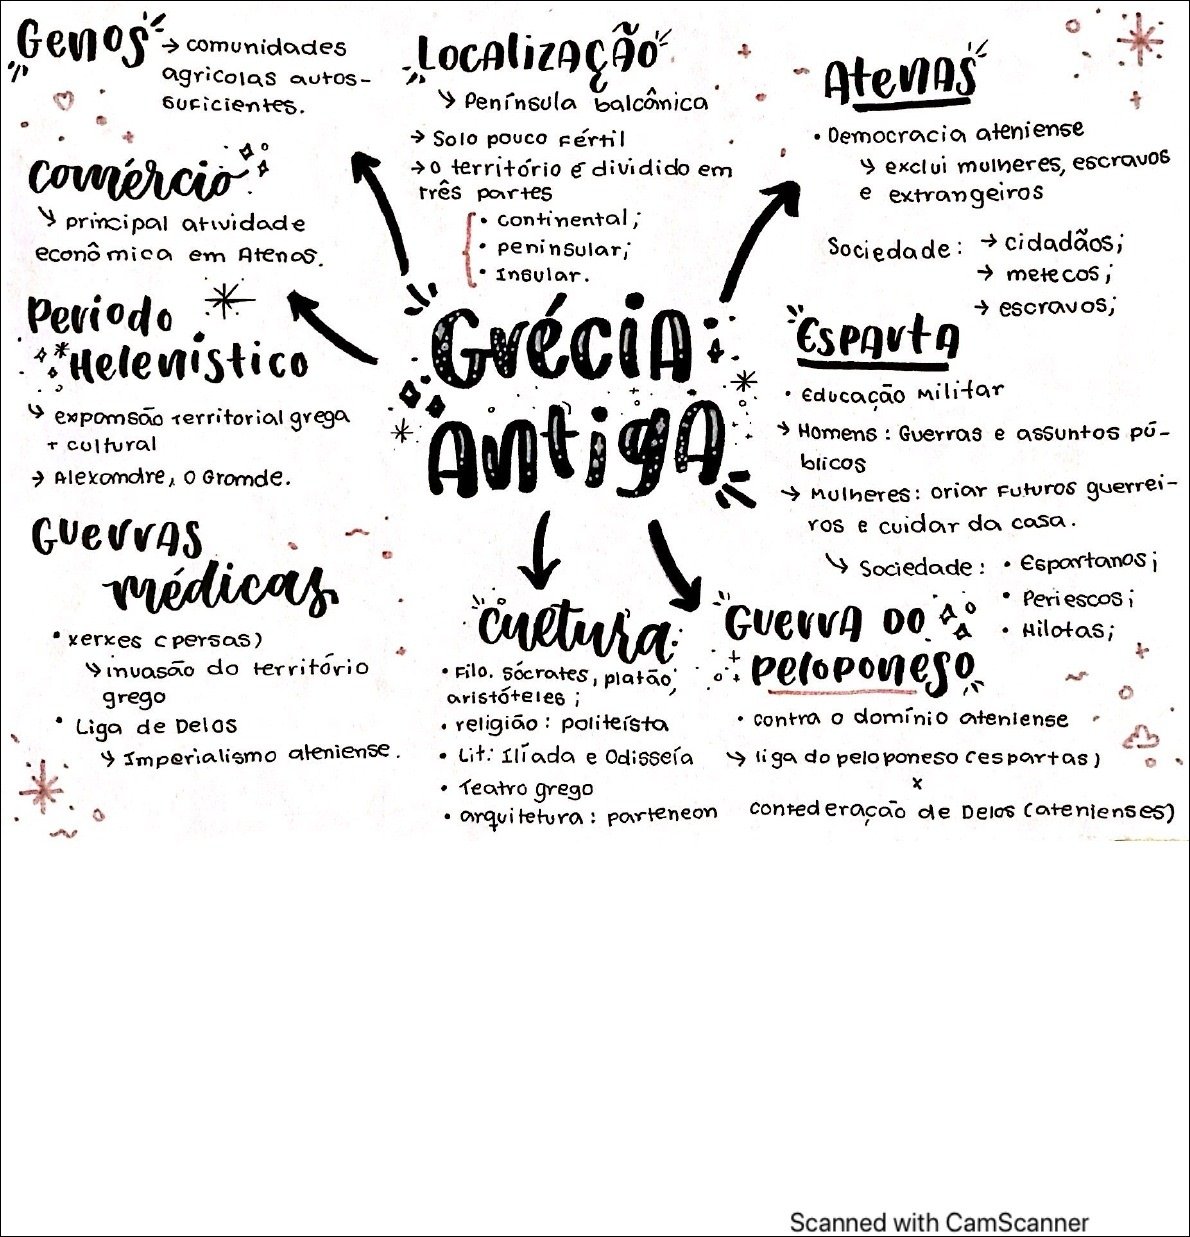 Genos
→ comunidades
agricolas autos-
suficientes.
Comércio
↳ principal atividade
econômica em Atenas.
Período
Helenístico
↳ expansão territorial grega
+ cultural
→ Alexandre, o Grande.
Guerras
médicas
• xerxes (persas)
↳ invasão do território
grego
• Liga de Delos
↳ Imperialismo ateniense.
Localização
↳ Península balcânica
→ Solo pouco fértil
→ o território é dividido em
três partes
• continental;
• peninsular;
• Insular.
Grécia
Antiga
Cultura
• Filo. Sócrates, platão,
aristóteles;
• religião: politeísta
• Lit: Ilíada e Odisseía
• Teatro grego
• arquitetura: parteneon
Atenas
• Democracia ateniense
↳ exclui mulheres, escravos
e extrangeiros
Sociedade: → cidadãos;
→ metecos;
→ escravos;
Esparta
• Educação Militar
→ Homens: Guerras e assuntos pú-
blicos
→ Mulheres: criar Futuros guerrei-
ros e cuidar da casa.
↳ Sociedade: • Espartanos;
• Periescos;
• Hilotas;
Guerra do
Peloponeso
• contra o domínio ateniense
↳ liga do peloponeso (espartas)
x
confederação de Delos (atenienses)
Scanned with CamScanner